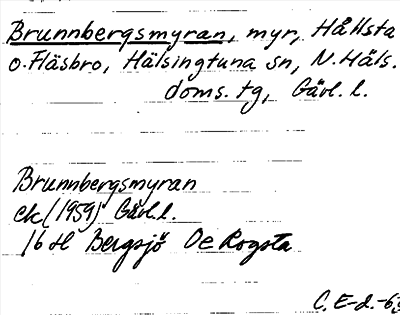 Brunnbergsmyran, myr, Hållsta
o. Fläsbro, Hälsingtuna sn, N. Häls.
doms. tg, Gävl. l.
Brunnbergsmyran
ek (1959) Gävl. l.
16 H Bergsjö Oe Rogsta
C. E-d.-63